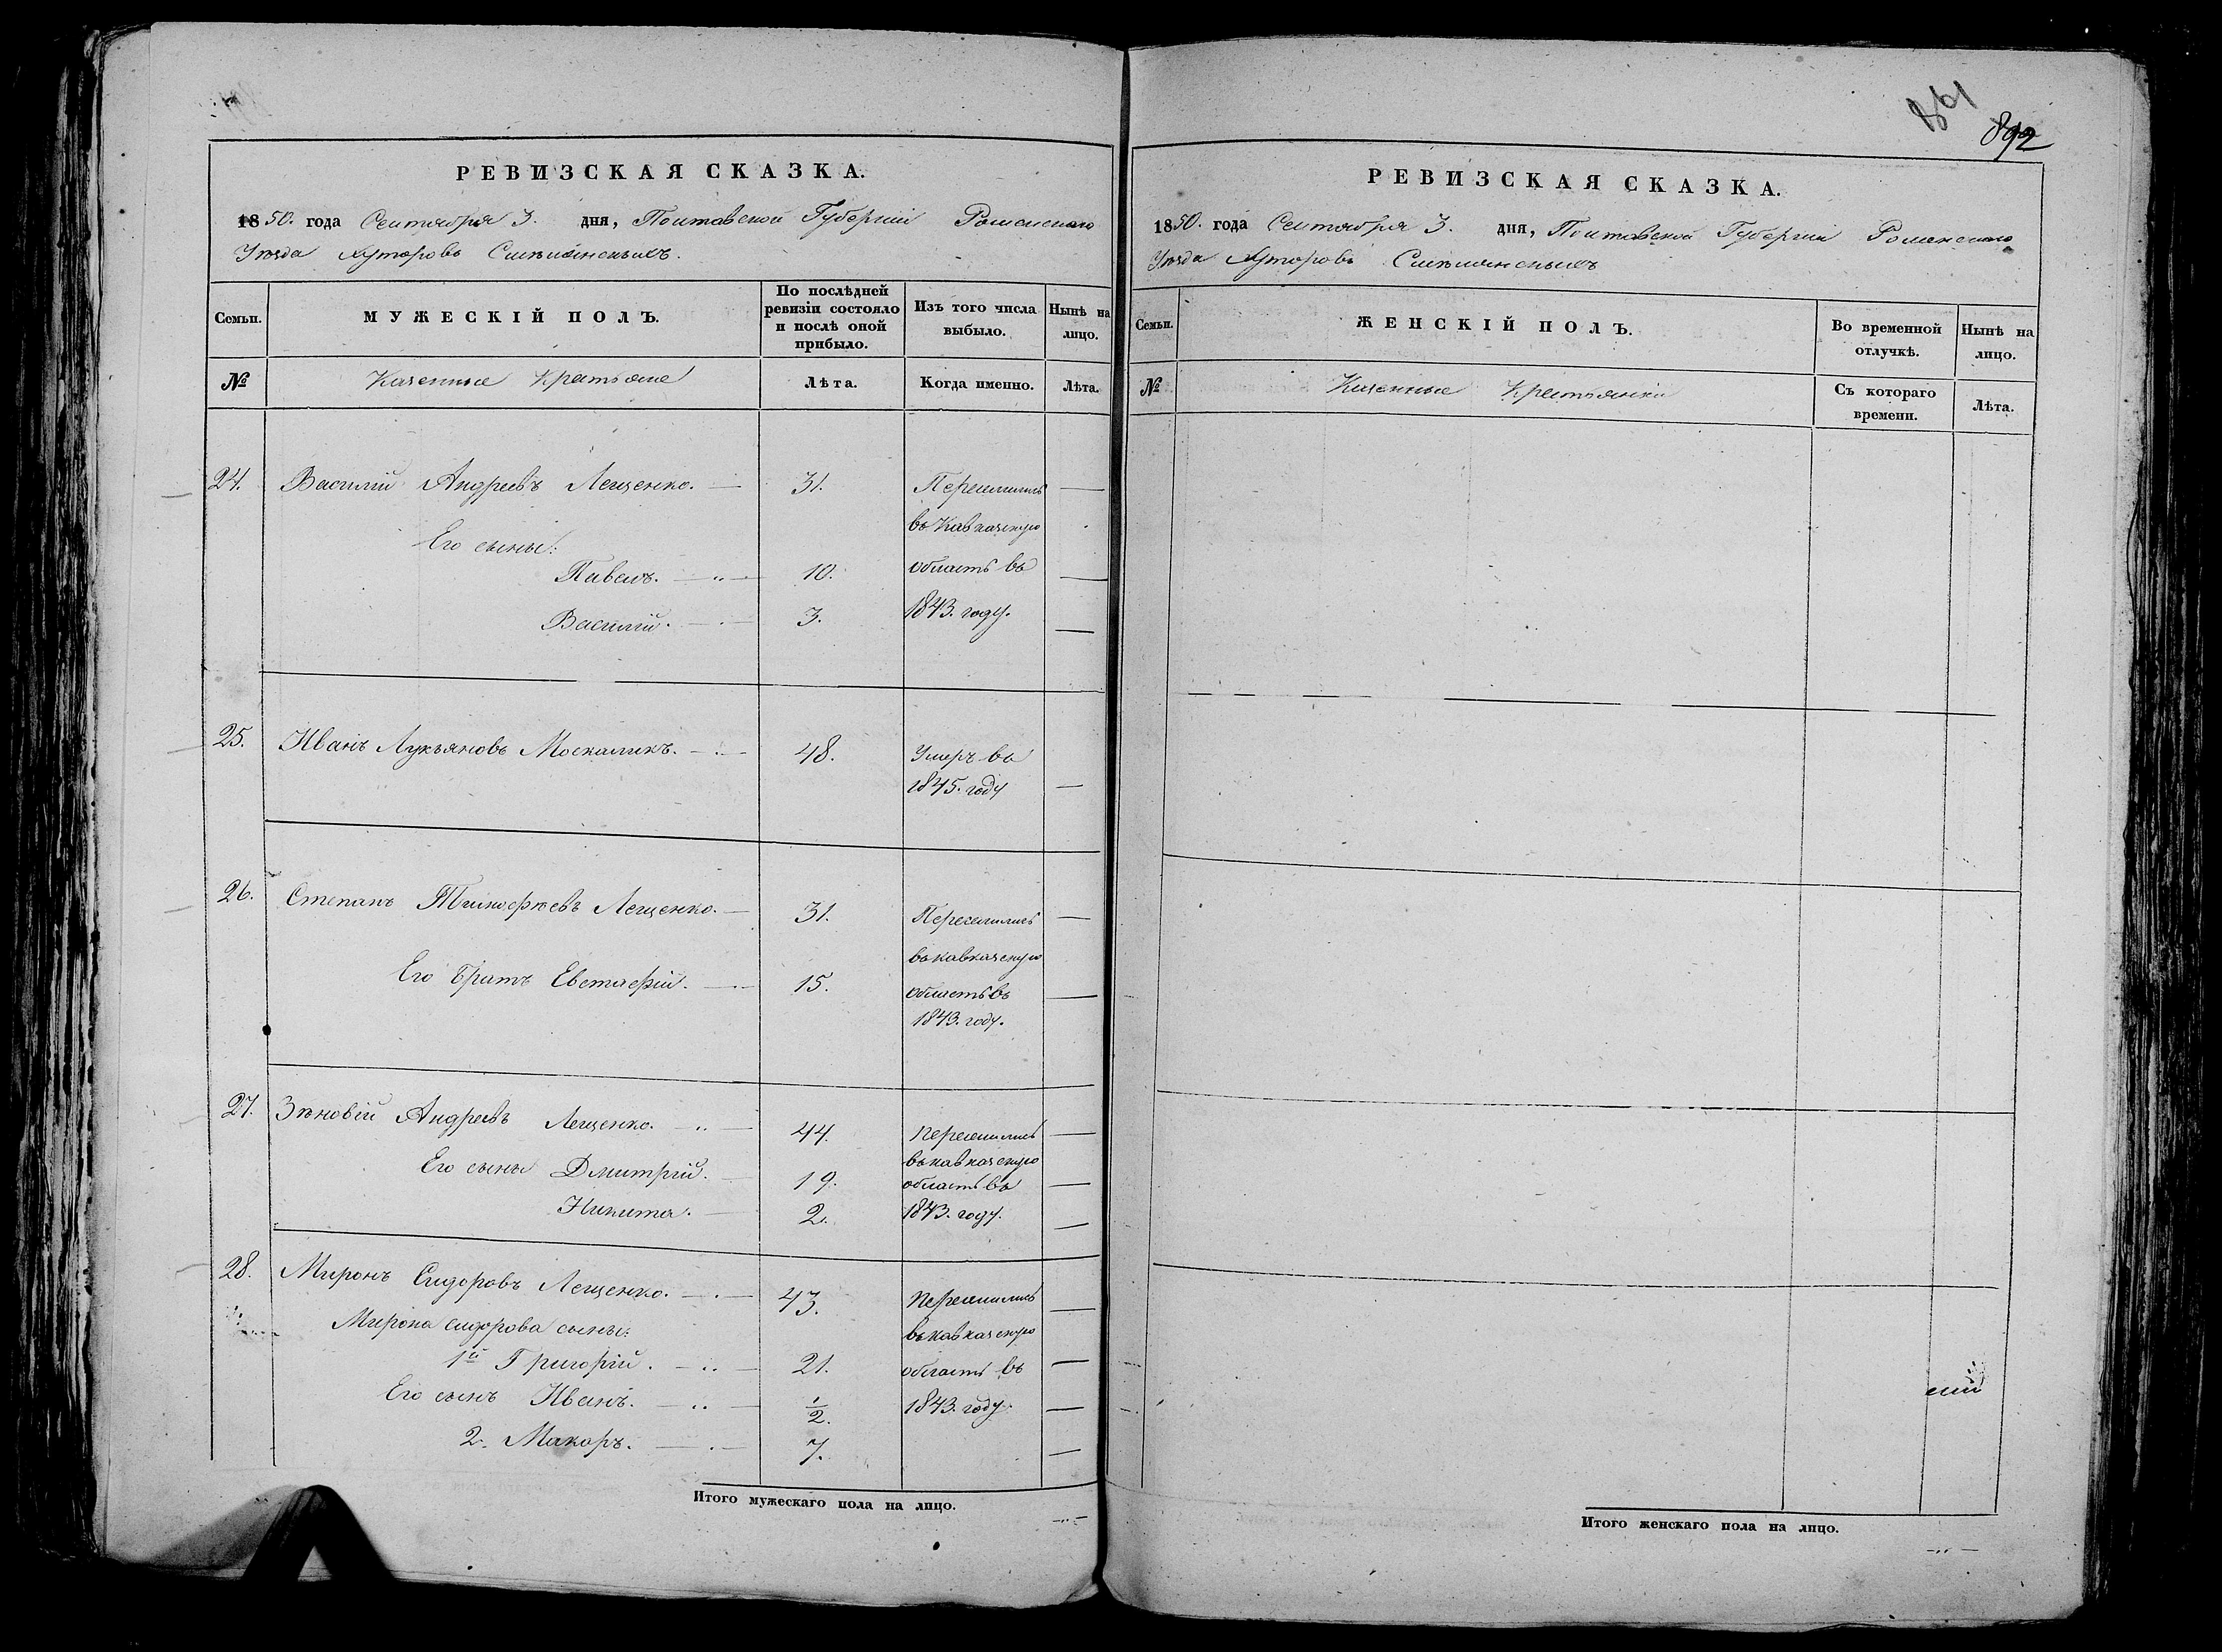 РЕВИЗСКАЯ СКАЗКА.
1850. года Сентября 3. дня, Полтавской Губерніи Роменскаго
Уѣзда Хуторовъ Смѣлянскихъ.
Семьи.
МУЖЕСКІЙ ПОЛЪ.
По послѣдней ревизіи состояло и послѣ оной прибыло.
Изъ того числа выбыло.
Нынѣ на лицо.
№
Казенные Крестьяне
Лѣта.
Когда именно.
Лѣта.
24. Василій Андреевъ Лещенко. 31. Переселились
въ Кавказскую
Его сыны:
Павелъ. 10. область въ
Василій. 3. 1843. году.
25. Иванъ Лукьяновъ Москаликъ. 48. Умеръ въ
1845. году
26. Степанъ Тимофѣевъ Лещенко. 31. Переселились
въ кавказскую
Его братъ Евстафій. 15. область въ
1843. году.
27. Зѣновій Андреевъ Лещенко. 44. Переселились
въ кавказскую
Его сыны Дмитрій. 19. область въ
Никита. 2. 1843. году.
28. Миронъ Сидоровъ Лещенко. 43. Переселились
Мирона сидорова сыны: въ кавказскую
1й Григорій. 21. область въ
Его сынъ Иванъ. 1/2. 1843. году.
2. Макаръ. 7.
Итого мужескаго пола на лицо.
861
892
РЕВИЗСКАЯ СКАЗКА.
1850. года Сентября 3. дня, Полтавской Губерніи Роменскаго
Уѣзда Хуторовъ Смѣлянскихъ
Семьи.
ЖЕНСКІЙ ПОЛЪ.
Во временной отлучкѣ.
Нынѣ на лицо.
№
Казенные Крестьянки
Съ котораго времени.
Лѣта.
Итого женскаго пола на лицо.